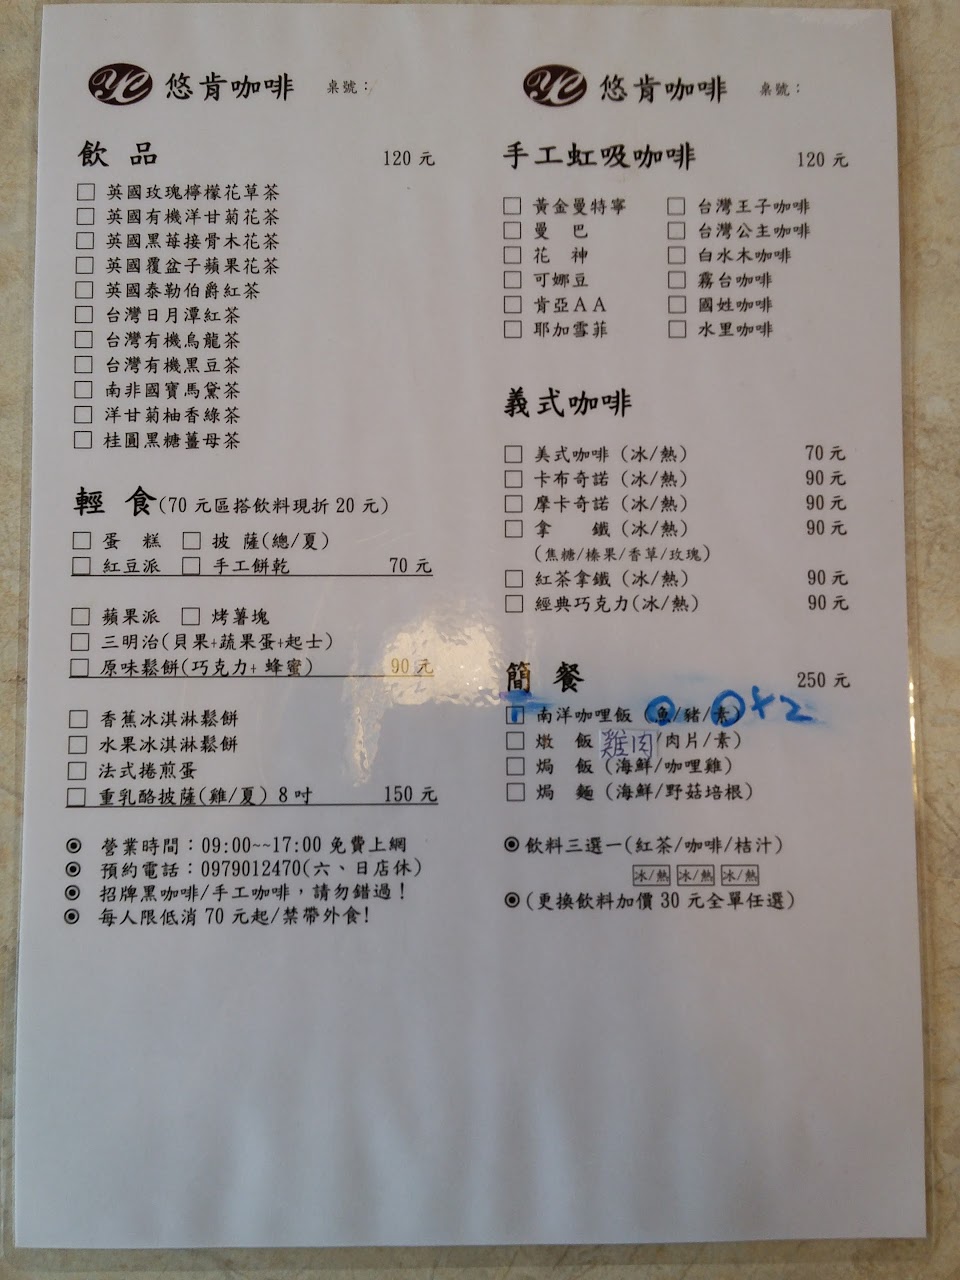 YC 悠肯咖啡 桌號：
飲品 120 元
英國玫瑰檸檬花草茶
英國有機洋甘菊花茶
英國黑莓接骨木花茶
英國覆盆子蘋果花茶
英國泰勒伯爵紅茶
台灣日月潭紅茶
台灣有機烏龍茶
台灣有機黑豆茶
南非國寶馬黛茶
洋甘菊柚香綠茶
桂圓黑糖薑母茶
輕食(70 元區搭飲料現折 20 元)
蛋糕 披薩(總/夏)
紅豆派 手工餅乾 70 元
蘋果派 烤薯塊
三明治(貝果+蔬果蛋+起士)
原味鬆餅(巧克力+ 蜂蜜) 90 元
香蕉冰淇淋鬆餅
水果冰淇淋鬆餅
法式捲煎蛋
重乳酪披薩(雞/夏) 8 吋 150 元
營業時間：09:00~~17:00 免費上網
預約電話：0979012470(六、日店休)
招牌黑咖啡/手工咖啡，請勿錯過！
每人限低消 70 元起/禁帶外食!
YC 悠肯咖啡 桌號：
手工虹吸咖啡 120 元
黃金曼特寧 台灣王子咖啡
曼巴 台灣公主咖啡
花神 白水木咖啡
可娜豆 霧台咖啡
肯亞AA 國姓咖啡
耶加雪菲 水里咖啡
義式咖啡
美式咖啡 (冰/熱) 70 元
卡布奇諾 (冰/熱) 90 元
摩卡奇諾 (冰/熱) 90 元
拿鐵 (冰/熱) 90 元
(焦糖/榛果/香草/玫瑰)
紅茶拿鐵 (冰/熱) 90 元
經典巧克力(冰/熱) 90 元
簡餐 250 元
南洋咖哩飯 (魚/豬/素) +2
燉飯 雞肉/肉片/素)
焗飯 (海鮮/咖哩雞)
焗麵 (海鮮/野菇培根)
飲料三選一(紅茶/咖啡/桔汁)
冰/熱 冰/熱 冰/熱
(更換飲料加價 30 元全單任選)